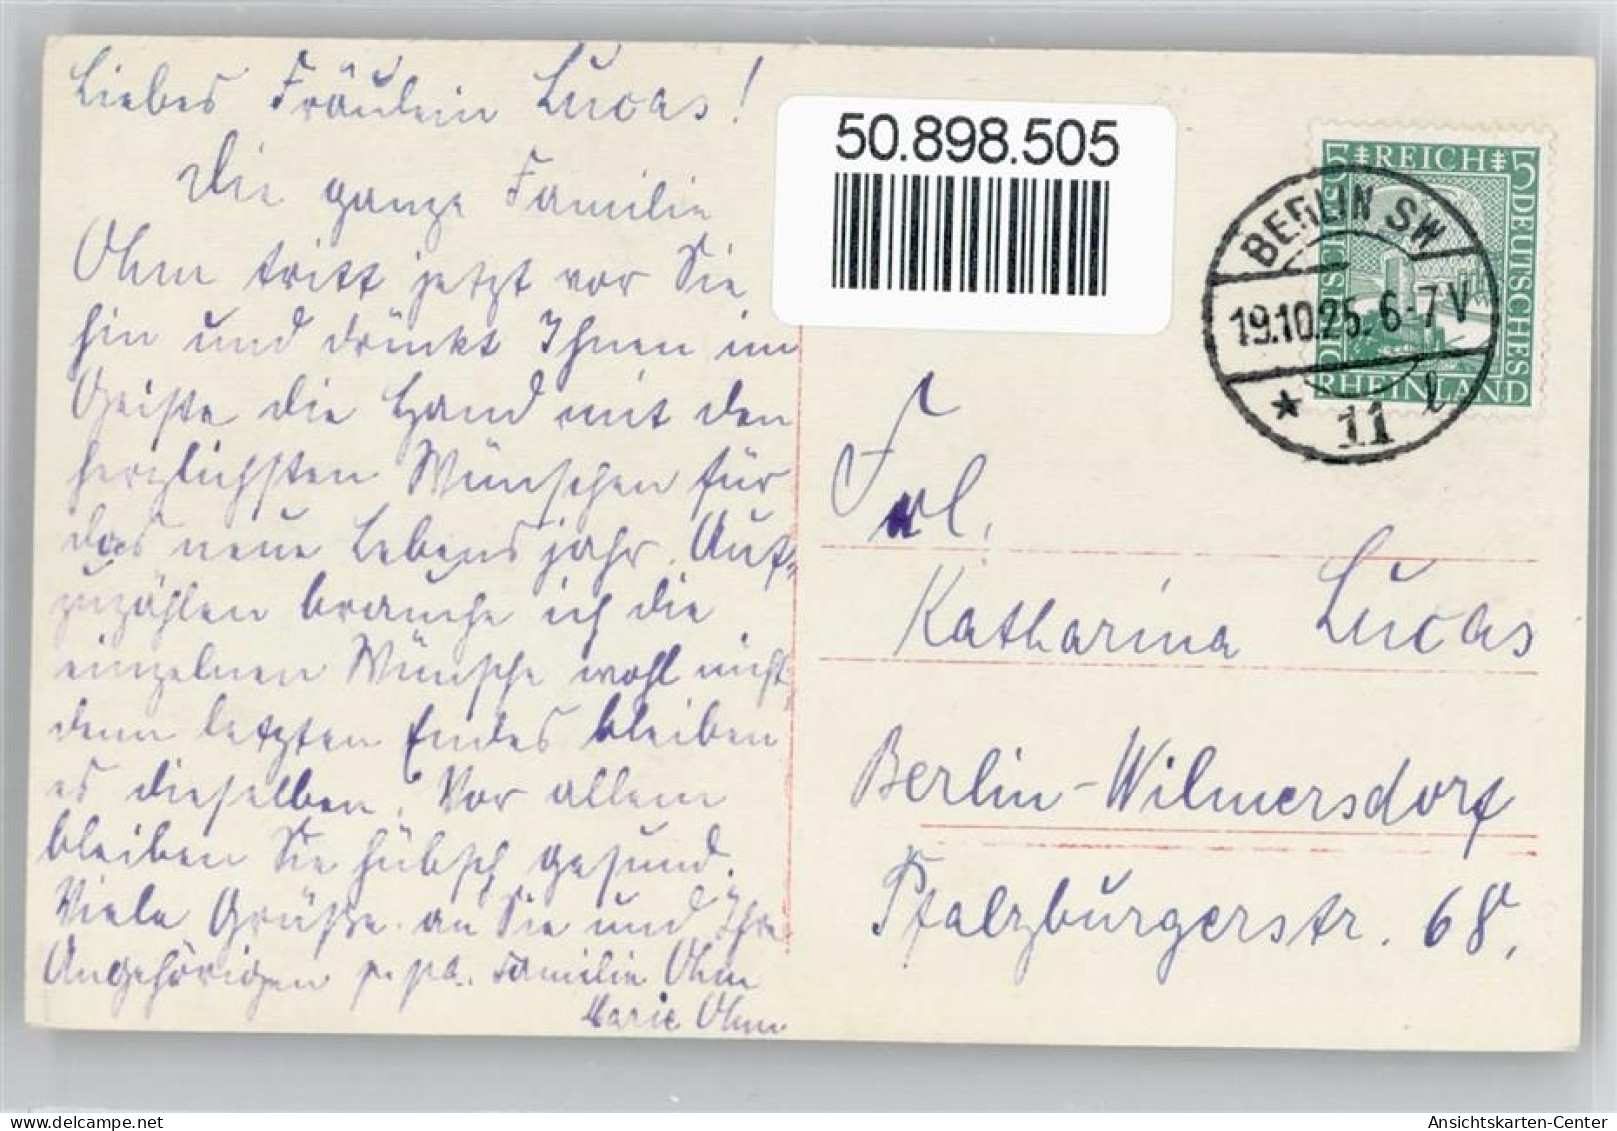 Liebes Fräulein Lucas!
Die ganze Familie
Ohm tritt jetzt vor Sie
hin und drückt Ihnen im
Geiste die Hand mit den
herzlichsten Wünschen für
das neue Lebensjahr. Auf-
zuzählen brauche ich die
einzelnen Wünsche wohl nicht,
denn letzten Endes bleiben
es dieselben. Vor allem
bleiben Sie hübsch gesund.
Viele Grüße an Sie und Ihre
Angehörigen Familie Ohm
Marie Ohm
50.898.505
5 REICH 5
DEUTSCHES
RHEINLAND
BERLIN SW
19.10.25. 6-7 V
* 11 l
Frl.
Katharina Lucas
Berlin-Wilmersdorf
Pfalzburgerstr. 68.
delcampe.net
Ansichtskarten-Center